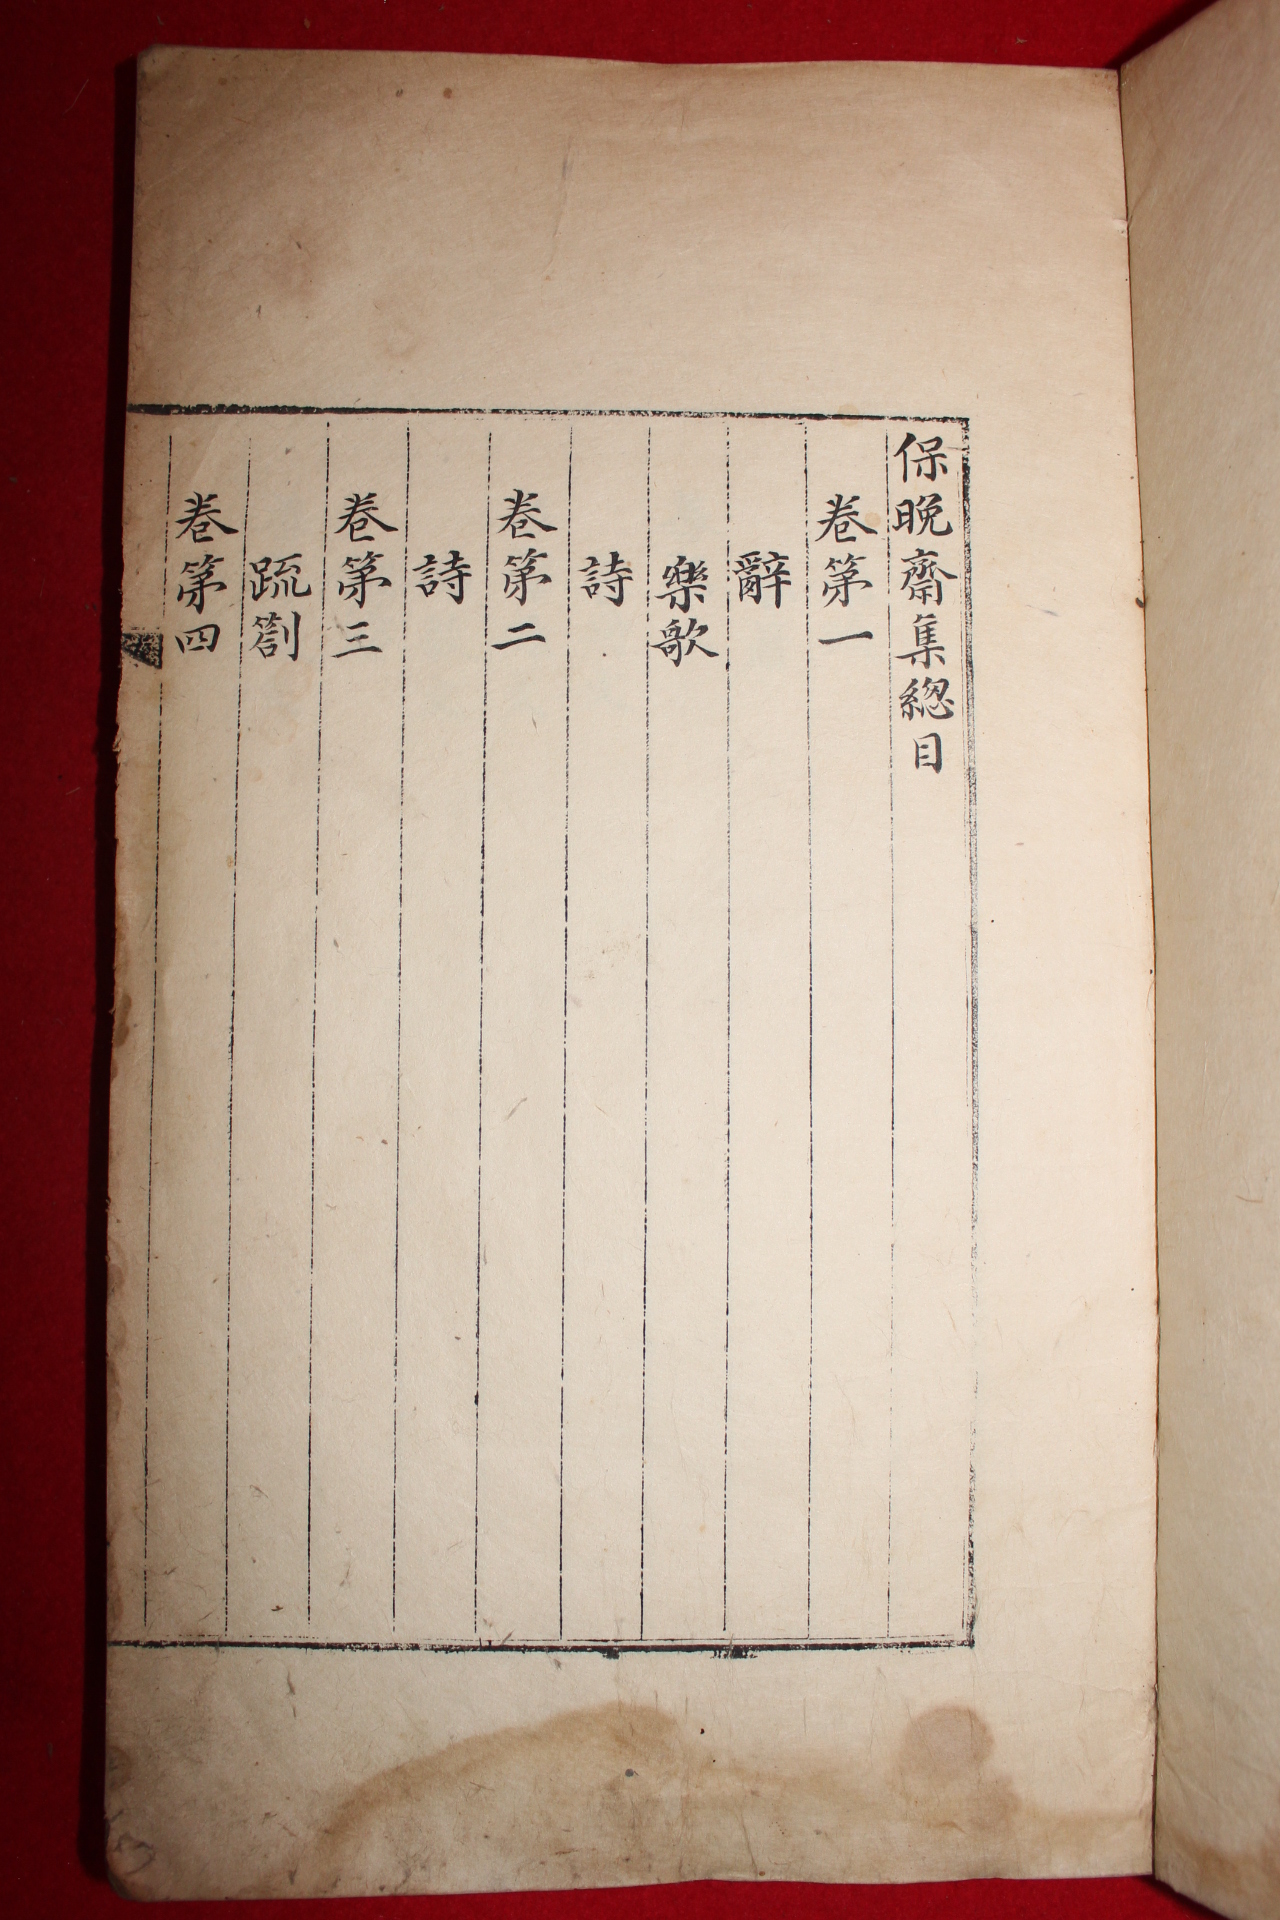 保晚齋集緫目
卷第一
辭
樂歌
詩
卷第二
詩
卷第三
䟽劄
卷第四